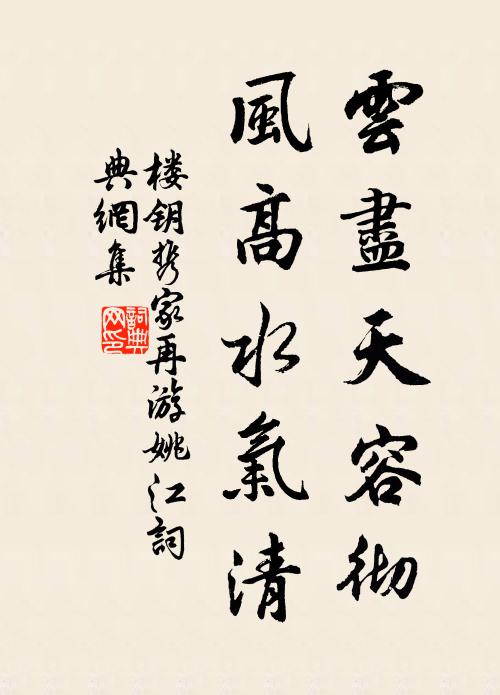 雲盡天容彻
風高水氣清
楼钥携家再游姚江詞
典網集
詞典
网印